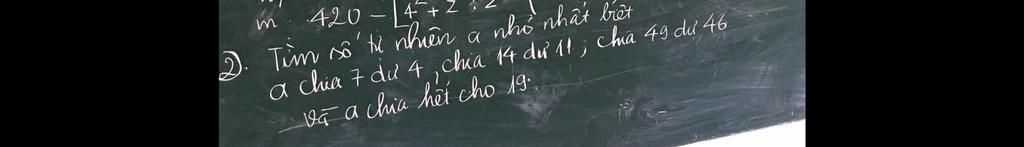 m 420 - [4 + 2 : 2
2). Tìm số tự nhiên a nhỏ nhất biết
a chia 7 dư 4, chia 14 dư 11, chia 49 dư 46
và a chia hết cho 19.